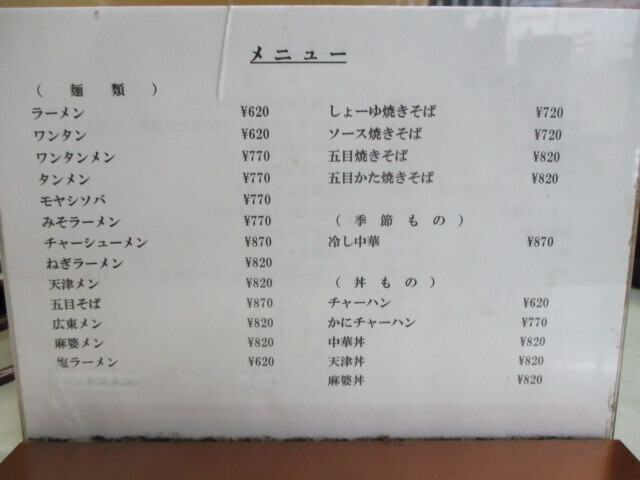 メニュー
（　麺　類　）
ラーメン ¥620
ワンタン ¥620
ワンタンメン ¥770
タンメン ¥770
モヤシソバ ¥770
みそラーメン ¥770
チャーシューメン ¥870
ねぎラーメン ¥820
天津メン ¥820
五目そば ¥870
広東メン ¥820
麻婆メン ¥820
塩ラーメン ¥620
しょーゆ焼きそば ¥720
ソース焼きそば ¥720
五目焼きそば ¥820
五目かた焼きそば ¥820
（　季　節　も　の　）
冷し中華 ¥870
（　丼　も　の　）
チャーハン ¥620
かにチャーハン ¥770
中華丼 ¥820
天津丼 ¥820
麻婆丼 ¥820